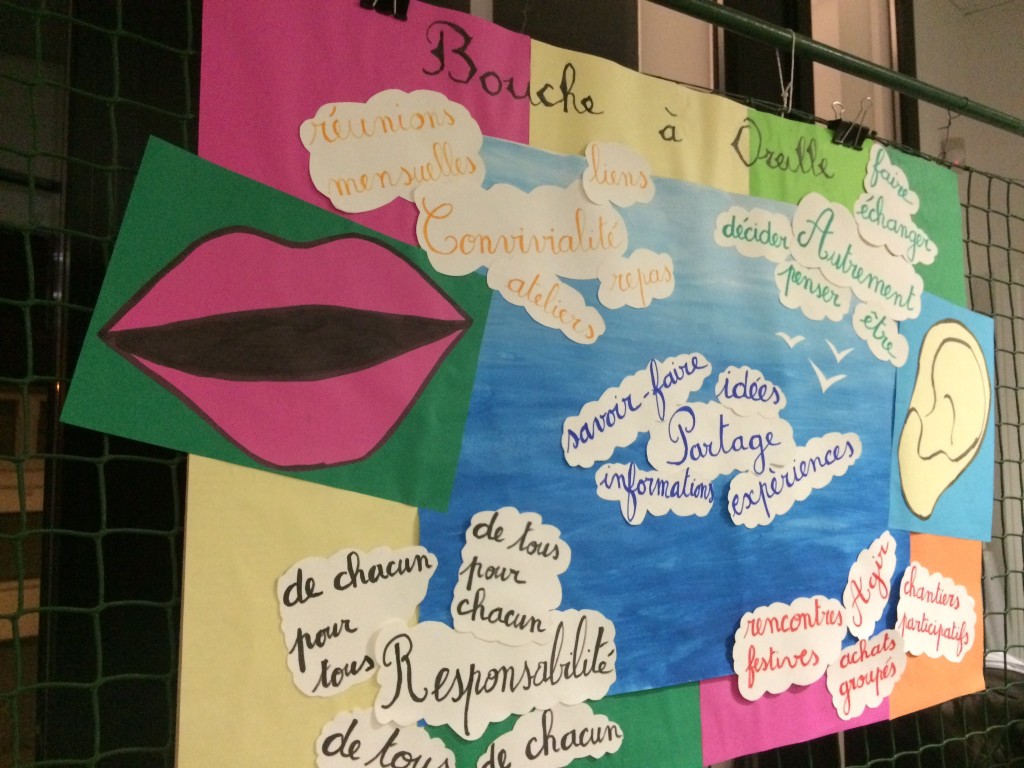 Bouche à Oreille
réunions
mensuelles
liens
Convivialité
ateliers
repas
faire
échanger
décider
Autrement
penser
être
savoir-faire
idées
Partage
informations
expèriences
de chacun
pour
tous
de tous
pour
chacun
Responsabilité
de tous
de chacun
Agir
rencontres
festives
chantiers
participatifs
achats
groupés